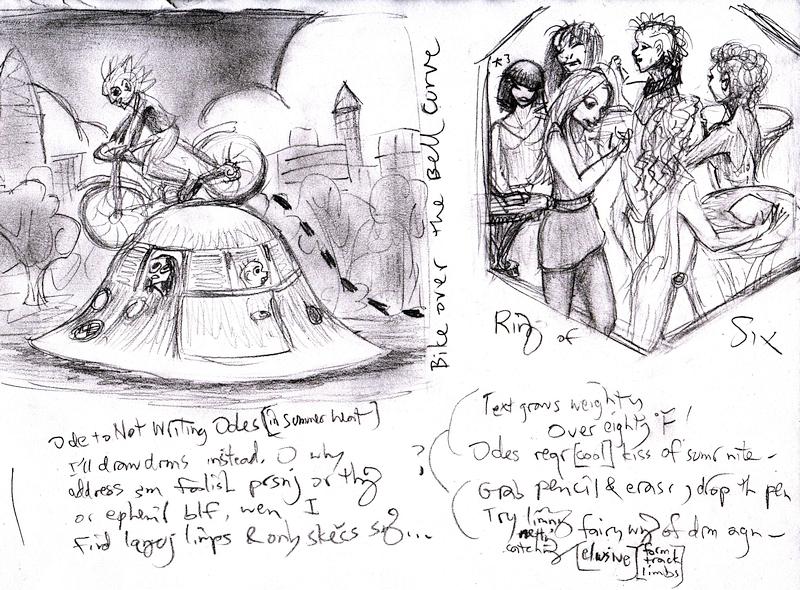 Bike over the Bell Curve
Ring of Six
Ode to Not Writing Odes [in summer heat]
I'll draw drms instead. O why
address sm foolish prsn or thg
or ephemrl blf, wen I
find large limps & only skečs
Text grows weighty
Over eighty °F!
Odes reqr [cool] kiss of sumr nite -
Grab pencil & erasr, drop th pen
Try fairy wg of drm agn -
catching [elusive] [form track limbs]